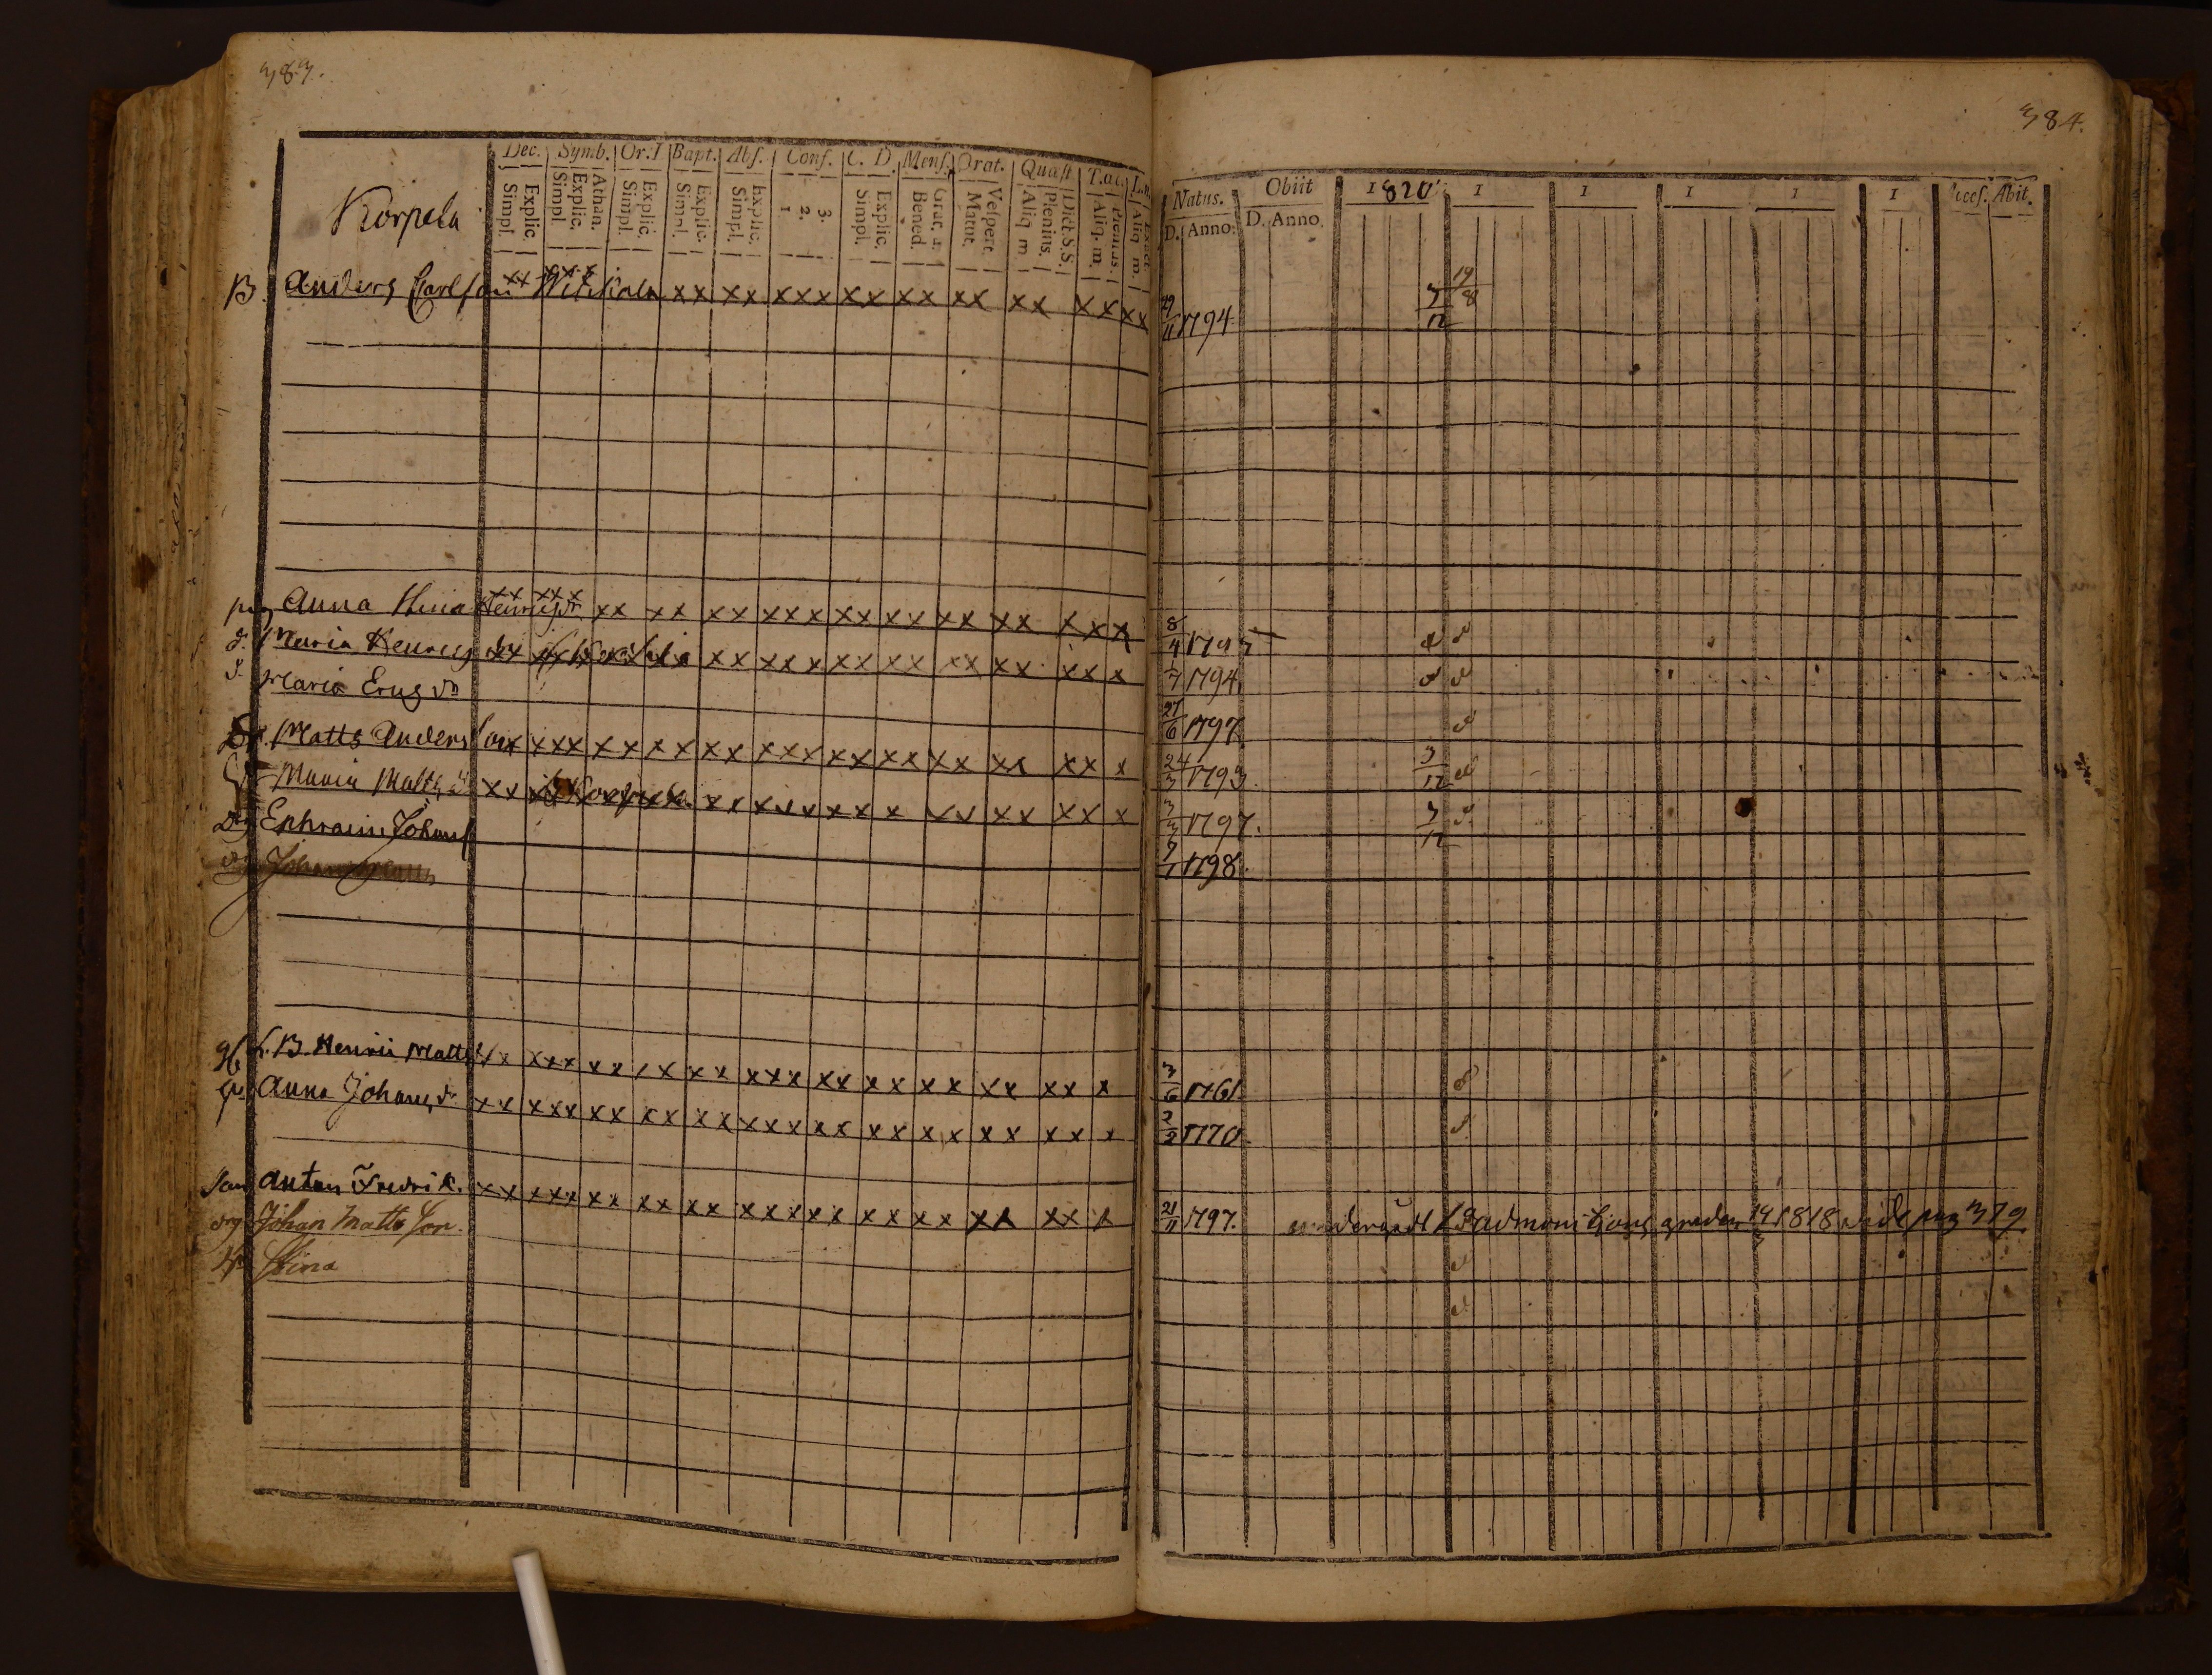 383.
384.
Dec. Symb. Or. I Bapt. Abs. Conf. C. D. Mens. Orat. Quæst. T. œc. L. n.
Explic. Simpl. Athan. Explic. Simpl. Explic. Simpl. Explic. Simpl. Explic. Simpl. 3. 2. 1. Explic. Simpl. Grat. a. Bened. Vespert. Matut. Dict. S.S. Plenius. Aliq. m. Plenius. Aliq. m. Exact. Aliq. m.
Natus. Obiit 1820 I I I I I Accef. Abit.
D. Anno. D. Anno.
Korpela
B. Anders Carlsson xx xxx xx xx xxx xx xx xx xx xx xx 1794 3/12 19/8
pig Anna Henricsdr xx xxx xx xx xx xxx xx xx xx xx xxx 8/4 179
d. Maria Henricsdr xx xx xxx xx xx xx xx xx x 1/7 1794
d. Maria Ericsdr 27/6 1797
Matts Andersson xx xxx xx xx xx xxx xx xx xx xx xx x 24/3 1793. 3/12
Maria Mattsdr xx Korpela xx xxx xx x xx xx xx x 3/3 1797. 3/12
Dg Ephraim Johanss 1798.
dg Johan Matts
B. Henric Matts xx xxx xx xx xx xxx xx xx xx xx xx x 3/6 1761.
Anna Johansdr xx xxx xx xx xx xxx xx xx xx xx xx x 2/2 1770.
Son Anton Fredrik. xx xxx xx xx xx xxx xx xx xx xx xx x 21/11 1797. undergådt admonitions graden 1818 vide pag 379
dg Johan Mattsson.
Stina